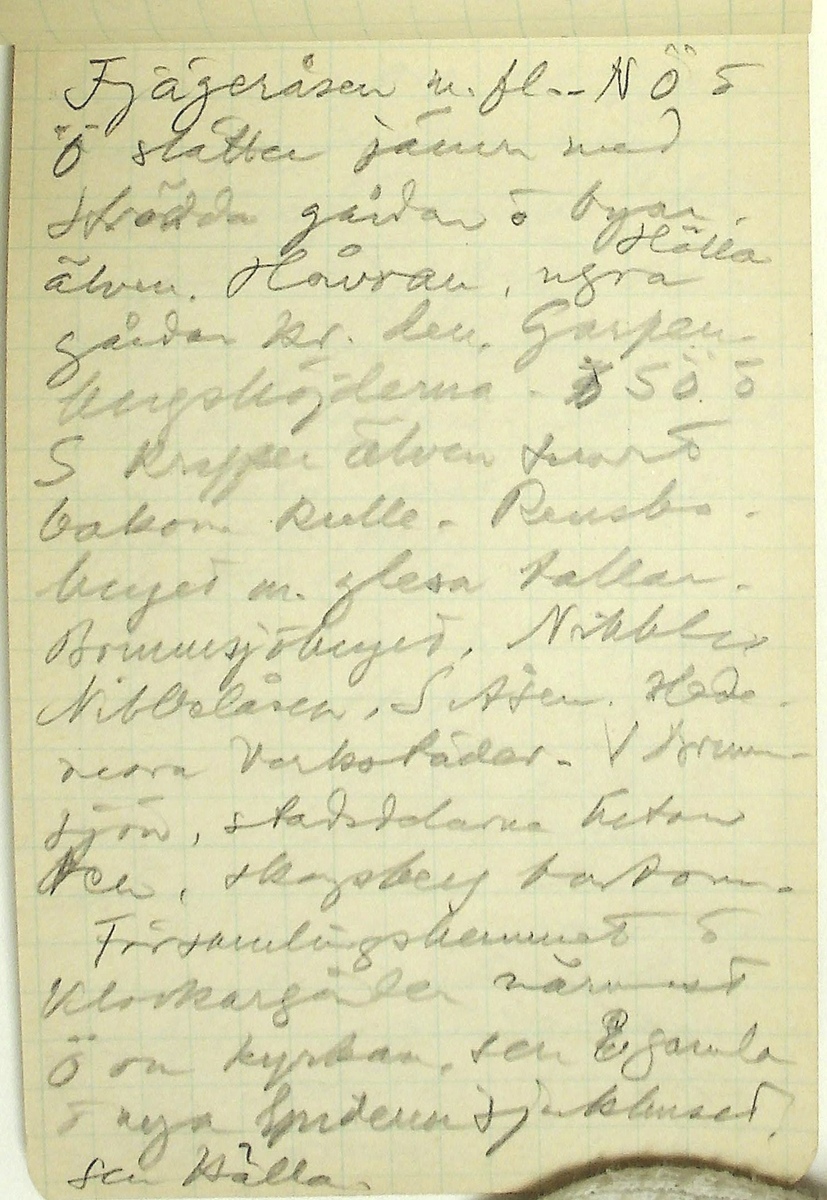 Fjägeråsen m. fl. - N Ö o
Ö slätter jämn med
strödda gårdar o byar.
Hälla
älven. Håvran, ngra
gårdar kr. den. Garpen-
bergshöjderna. SÖ. o
S knyper älven snart
bakom kulle. Rensbo-
berget m. glesa tallar.
Brunnsjöberget, Nibble,
Nibbleåsen, S Åsen. Hede-
mora Verkstäder. V Brunn-
sjön, stadsdelarna
skogsberg bortom.
Församlingshemmet o
Klockargården närmast
Ö om kyrkan, sen gamla
o nya Epidemisjukhuset,
sen Hälla.